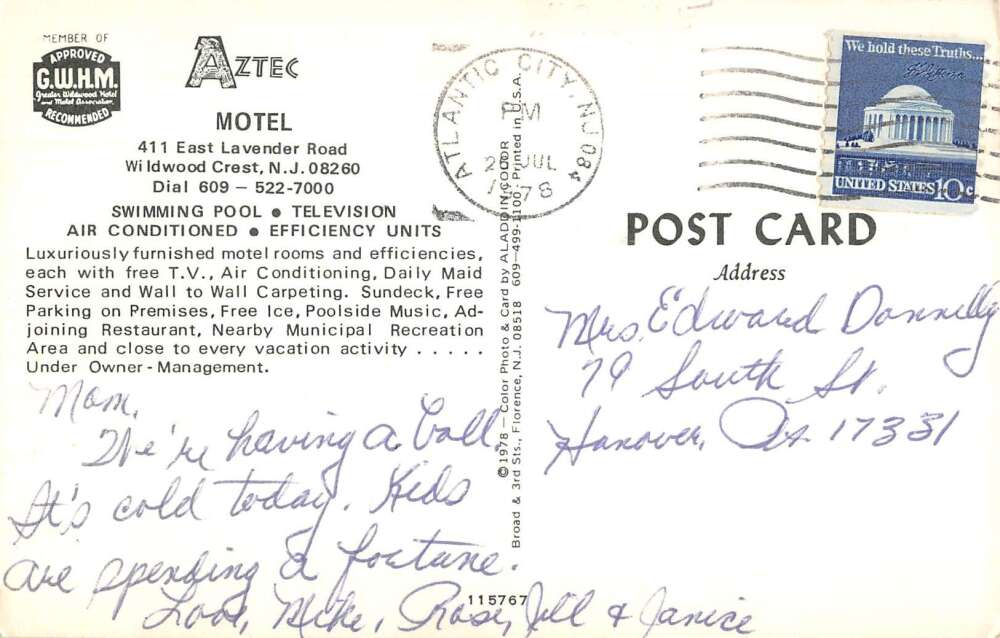 MEMBER OF
APPROVED
G.W.H.M.
Greater Wildwood Hotel
and Motel Association
RECOMMENDED
AZTEC
MOTEL
411 East Lavender Road
Wildwood Crest, N.J. 08260
Dial 609 – 522-7000
SWIMMING POOL ● TELEVISION
AIR CONDITIONED ● EFFICIENCY UNITS
Luxuriously furnished motel rooms and efficiencies,
each with free T.V., Air Conditioning, Daily Maid
Service and Wall to Wall Carpeting. Sundeck, Free
Parking on Premises, Free Ice, Poolside Music, Ad-
joining Restaurant, Nearby Municipal Recreation
Area and close to every vacation activity . . . . .
Under Owner - Management.
Mom,
We're having a ball.
It's cold today. Kids
are spending a fortune.
Love, Mike, Rose, Jill & Janice
115767
©1978—Color Photo & Card by ALADDIN COLOR
Broad & 3rd Sts., Florence, N.J. 08518 609-499-1100 Printed in U.S.A.
ATLANTIC CITY, NJ 084
PM
JUL
1978
We hold these Truths...
UNITED STATES 10c
POST CARD
Address
Mrs. Edward Donnelly
79 South St.
Hanover, Pa. 17331